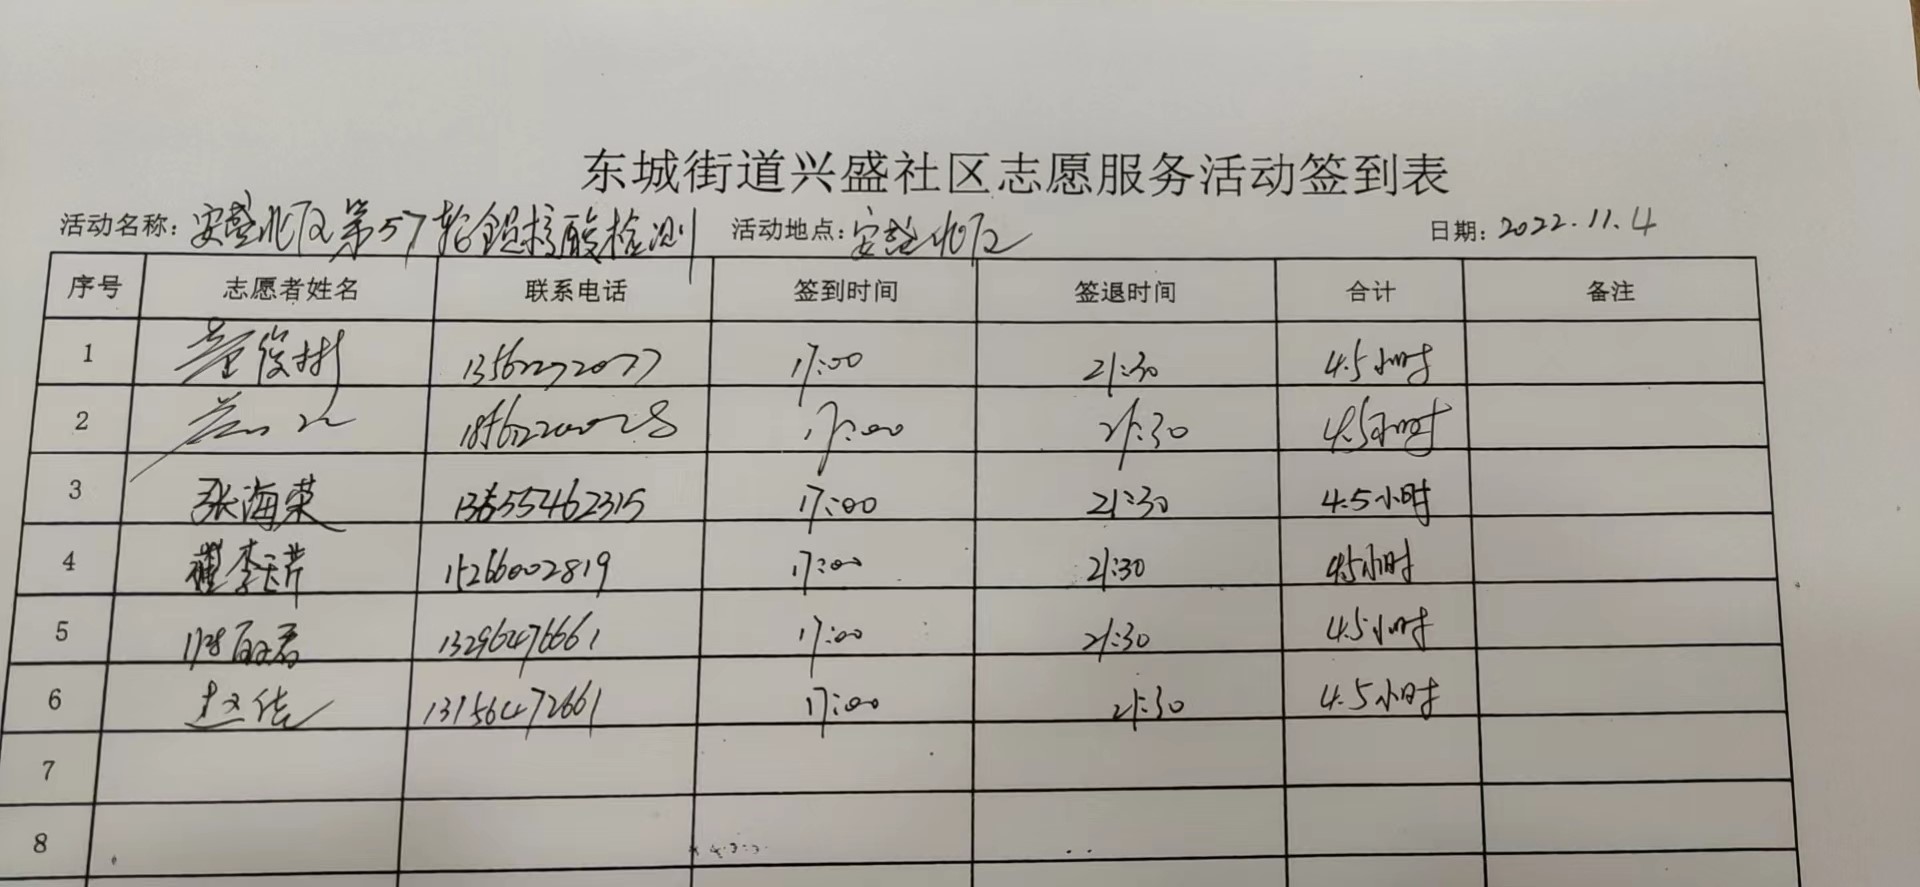 东城街道兴盛社区志愿服务活动签到表
活动名称: 安盛北区第57轮全员核酸检测 活动地点: 安盛北区 日期: 2022.11.4
序号 志愿者姓名 联系电话 签到时间 签退时间 合计 备注
1 俊彬 13562272077 17:00 21:30 4.5小时
2 17:00 21:30 4.5小时
3 张海荣 17:00 21:30 4.5小时
4 15266002819 17:00 21:30 4.5小时
5 13296476661 17:00 21:30 4.5小时
6 赵佳 13156472661 17:00 21:30 4.5小时
7
8